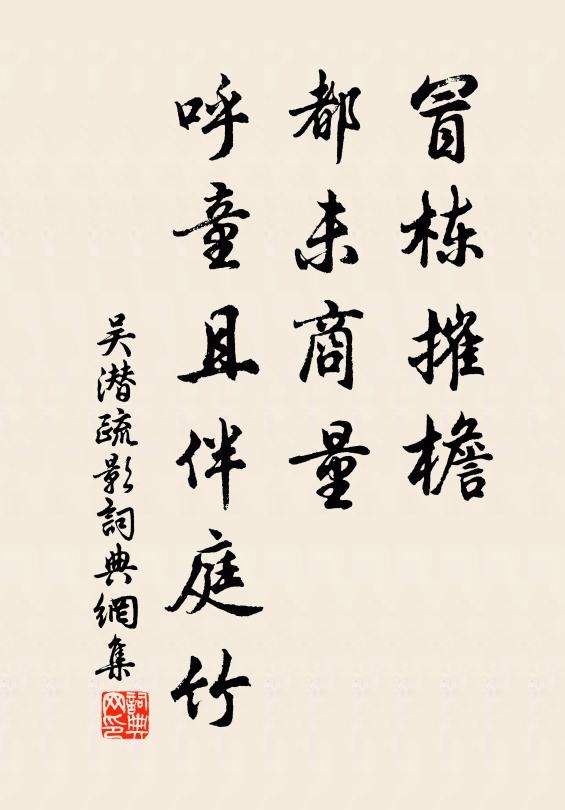 冒栋摧檐
都未商量
呼童且伴庭竹
吴潜疏影詞典網集
詞典网印